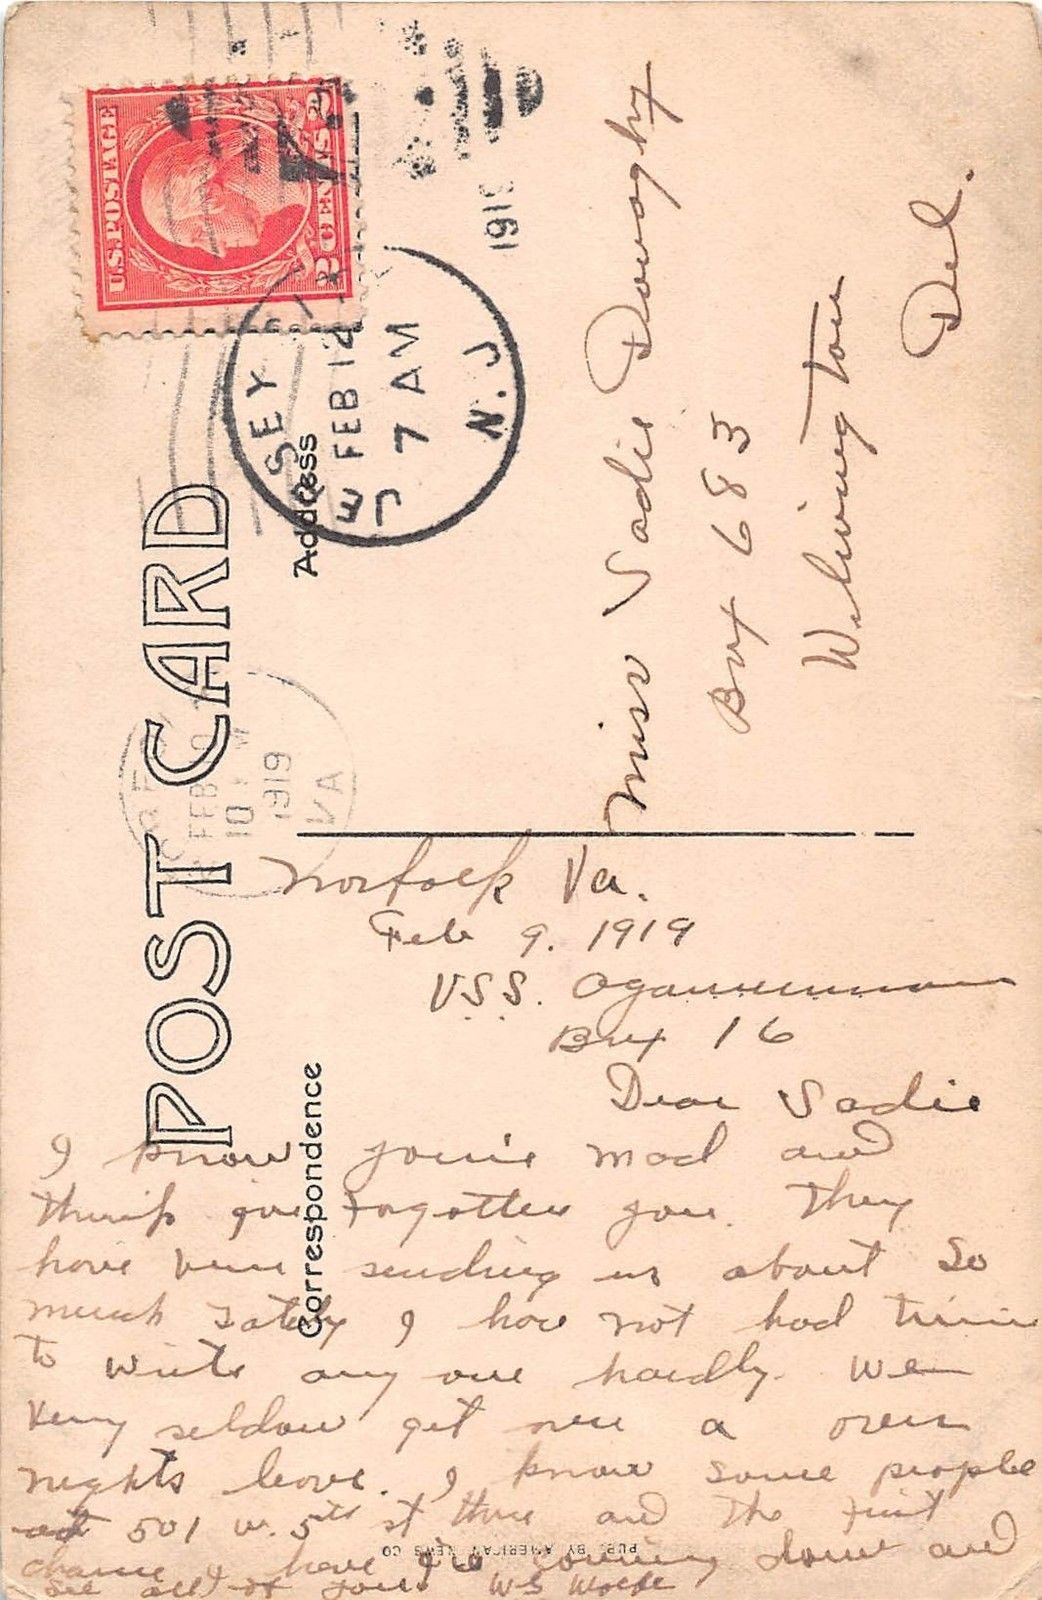 POST CARD
Address
Correspondence
U.S. POSTAGE
2 CENTS 2
SEY
FEB 12
7 AM
N.J.
FEB
10
1919
VA
Miss Sadie
Box 683
Wilmington
Del.
Norfolk Va.
Feb 9. 1919
USS.
Box 16
Dear Sadie
I know you're mad and
think I've forgotten you. They
have been sending us about so
much lately I have not had time
to write any one hardly. We
very seldom get over a over
nights leave. I know some people
at 501 W. 5th st there and the first
chance I have I'm coming down and
see all of you. WS
PUB. BY AMERICAN NEWS CO